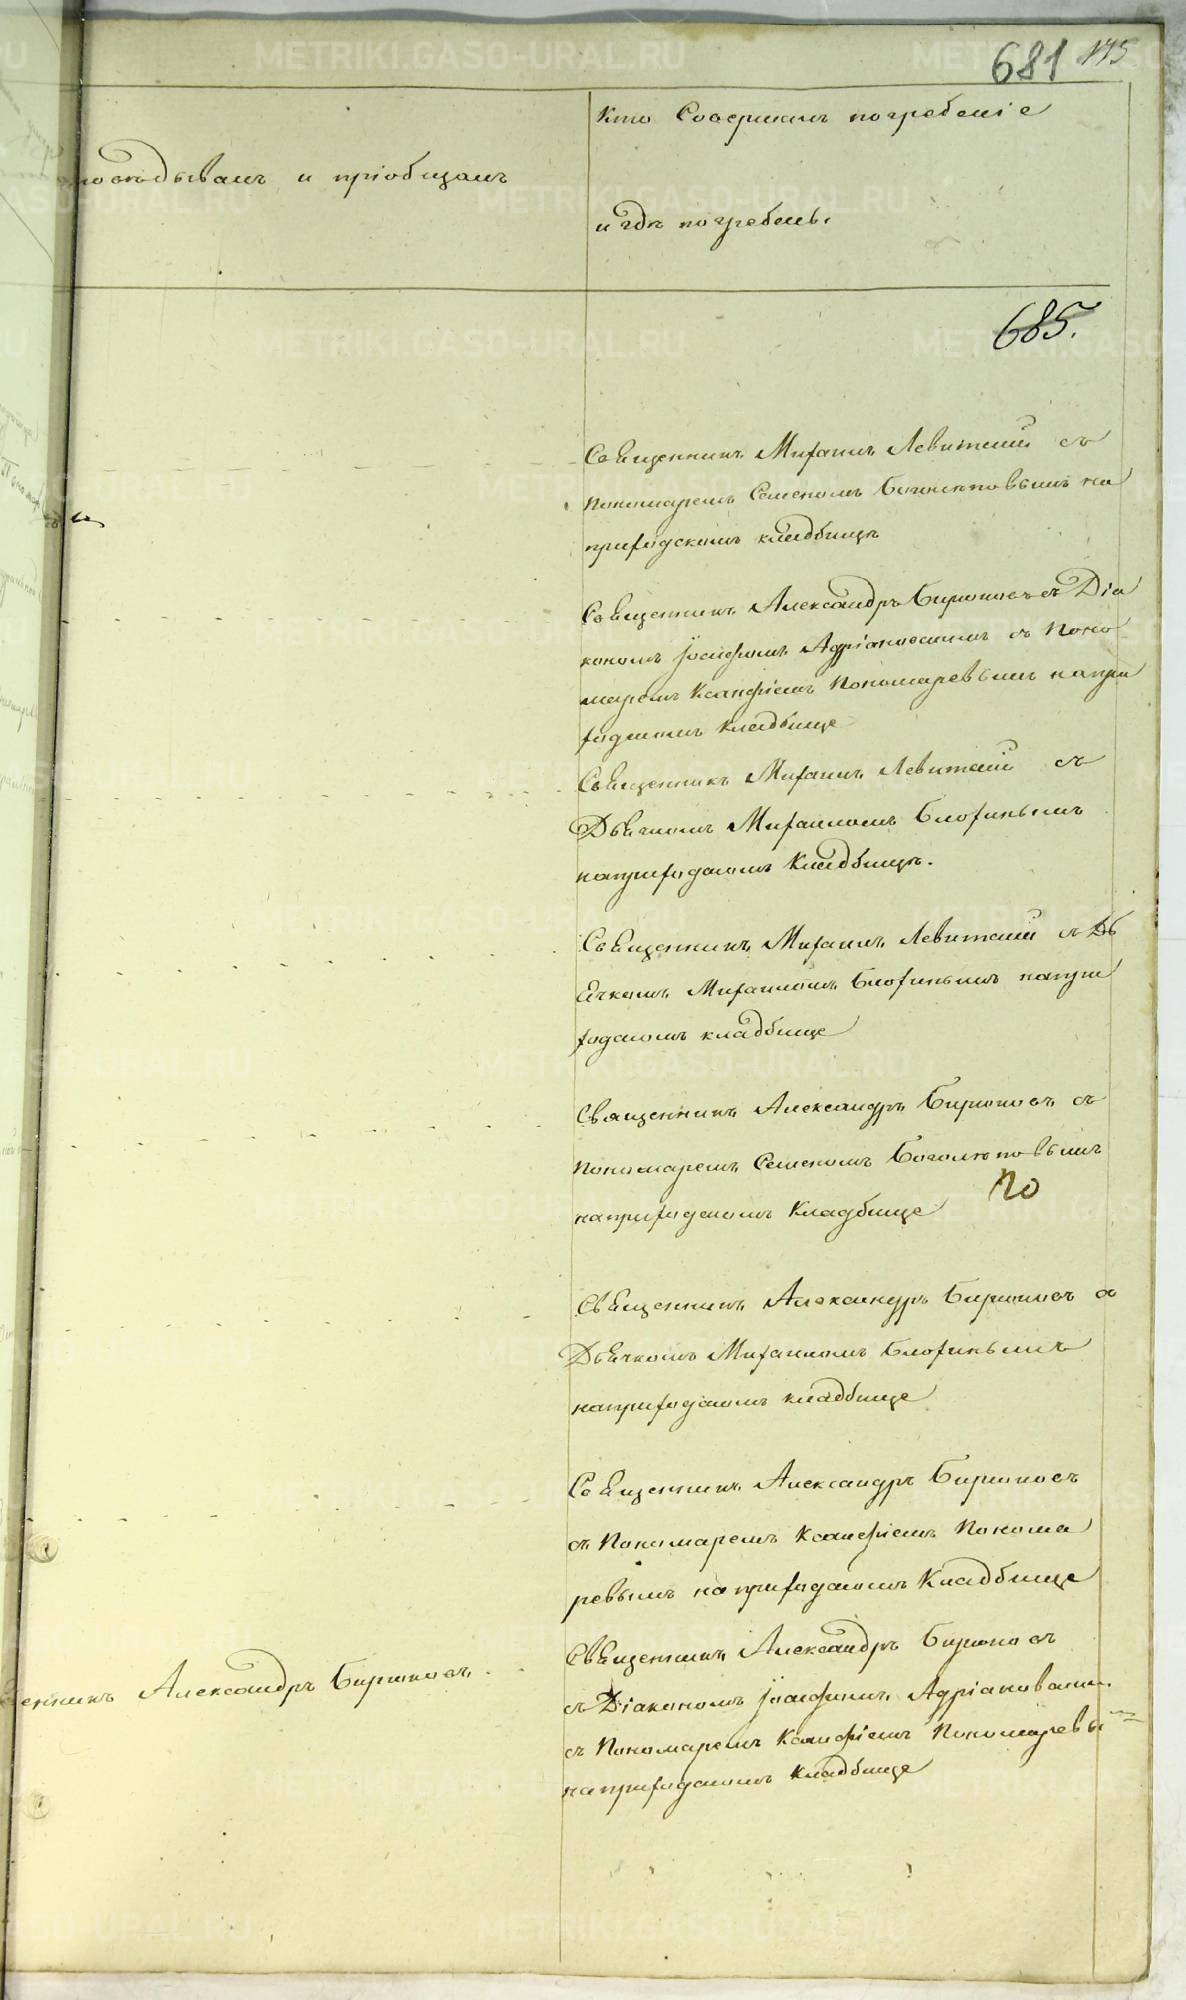 681 175
Кто Совершалъ погребенiе
исповѣдывалъ и прiобщалъ
и гдѣ погребены.
685.
Священникъ Михаилъ Левитскiй съ
Пономаремъ Семеномъ Боголеповымъ на
приходскомъ кладбищѣ
Священникъ Александръ Бирюковъ съ Дiа
кономъ Iосифомъ Адрiановскимъ съ Поно
маремъ Ксанфiемъ Пономаревымъ на при
ходскомъ кладбище
Священникъ Михаилъ Левитскiй съ
Дьячкомъ Михаиломъ Блохинымъ
на приходскомъ Кладбищѣ.
Священникъ Михаилъ Левитскiй съ Дь
ячкомъ Михаиломъ Блохинымъ на при
ходскомъ кладбище
Священникъ Александръ Бирюковъ съ
Пономаремъ Семеномъ Боголеповымъ
на приходскомъ Кладбище
Священникъ Александръ Бирюковъ съ
Дьячкомъ Михаиломъ Блохинымъ
на приходскомъ кладбище
Священникъ Александръ Бирюковъ
съ Пономаремъ Ксанфiемъ Понома
ревымъ на приходскомъ Кладбище
Священникъ Александръ Бирюковъ
енникъ Александръ Бирюковъ.
съ Дiакономъ Iосифомъ
съ Пономаремъ Ксанфiемъ Пономаревы
на приходскомъ Кладбище